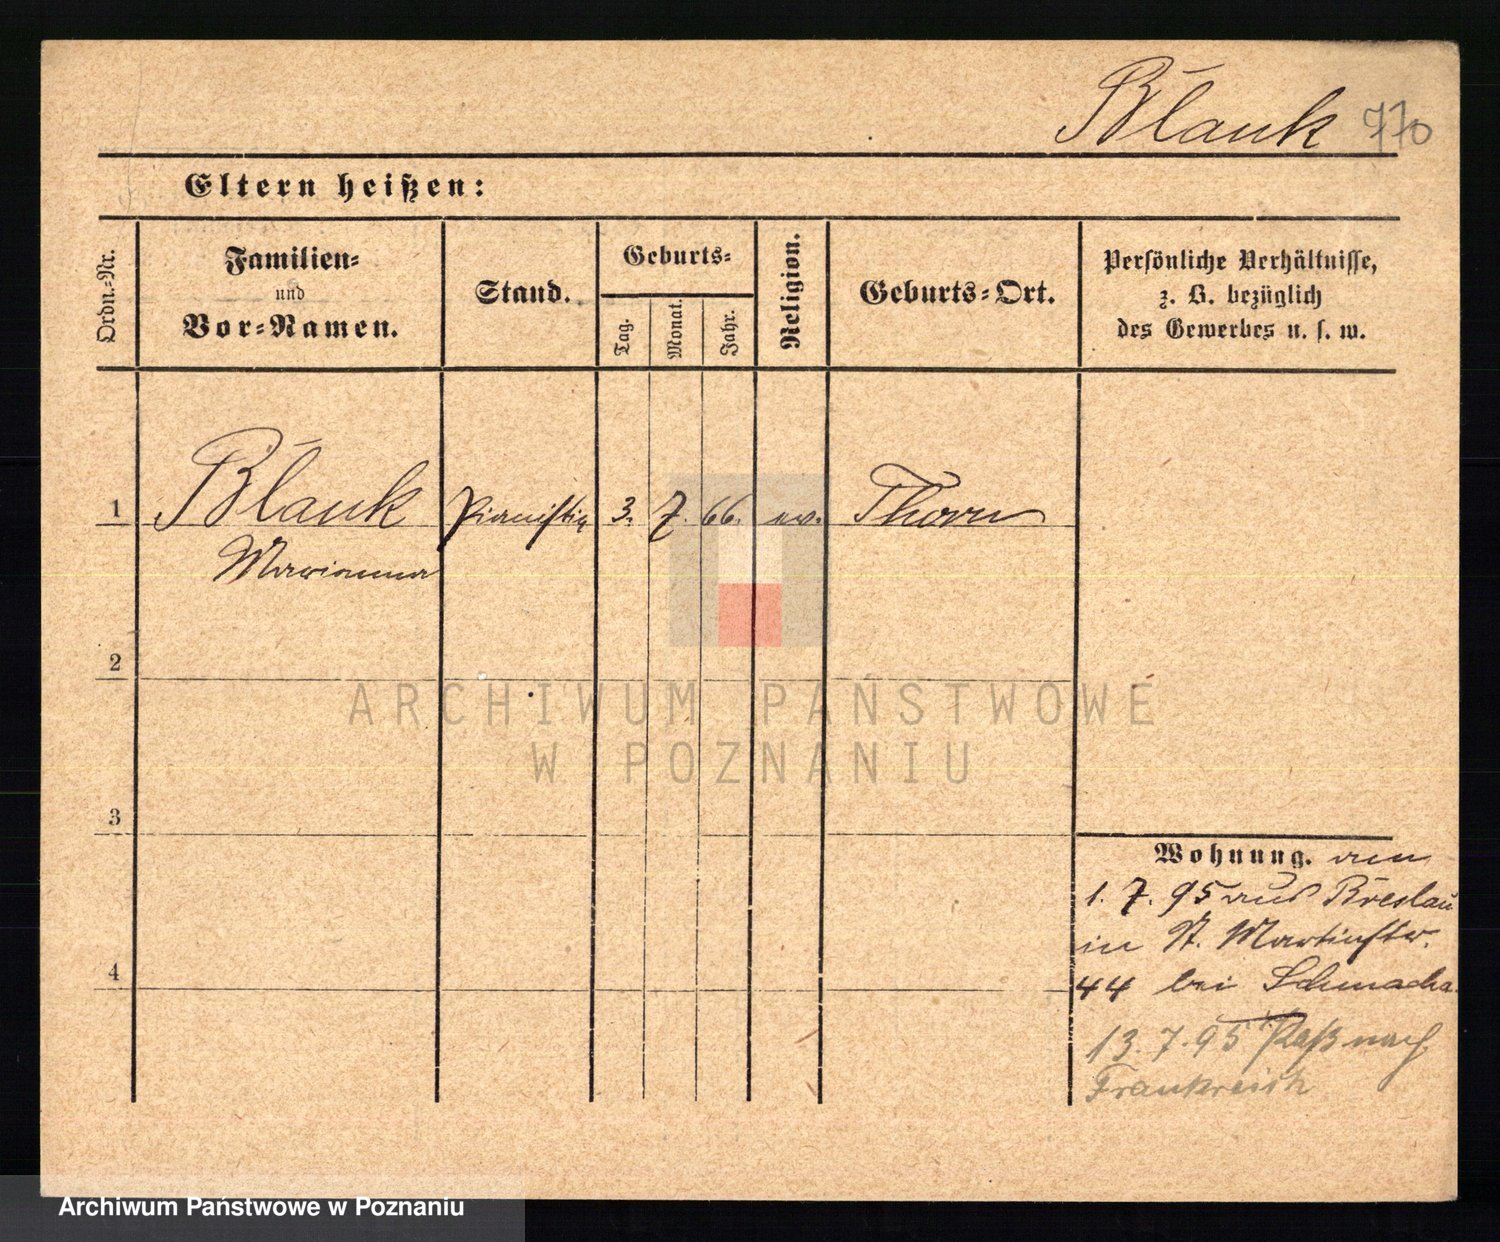 Blank 770
Eltern heißen:
Ordn.-Nr.
Familien-
und
Vor-Namen.
Stand.
Geburts-
Tag.
Monat.
Jahr.
Religion.
Geburts-Ort.
Persönliche Verhältnisse,
z. B. bezüglich
des Gewerbes u. s. w.
1 Blank Pianistin 3. 7. 66. ev. Thorn
Marianna
2
ARCHIWUM PAŃSTWOWE
W POZNANIU
3
Wohnung. am
1. 7. 95 aus Breslau
in St. Martinstr.
4
44 bei Schmacha
13. 7. 95 Paß nach
Frankreich
Archiwum Państwowe w Poznaniu